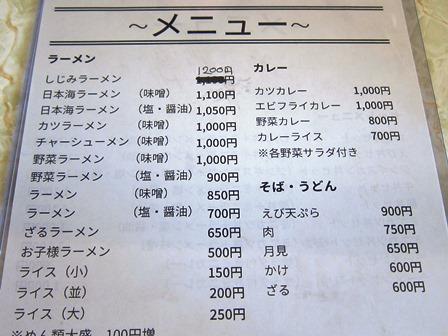 ～メニュー～
ラーメン
しじみラーメン 1200円
日本海ラーメン （味噌） 1,100円
日本海ラーメン （塩・醤油） 1,050円
カツラーメン （味噌） 1,000円
チャーシューメン （味噌） 1,000円
野菜ラーメン （味噌） 1,000円
野菜ラーメン （塩・醤油） 900円
ラーメン （味噌） 850円
ラーメン （塩・醤油） 700円
ざるラーメン 650円
お子様ラーメン 500円
ライス（小） 150円
ライス（並） 200円
ライス（大） 250円
※めん類大盛 100円増
カレー
カツカレー 1,000円
エビフライカレー 1,000円
野菜カレー 800円
カレーライス 700円
※各野菜サラダ付き
そば・うどん
えび天ぷら 900円
肉 750円
月見 650円
かけ 600円
ざる 600円